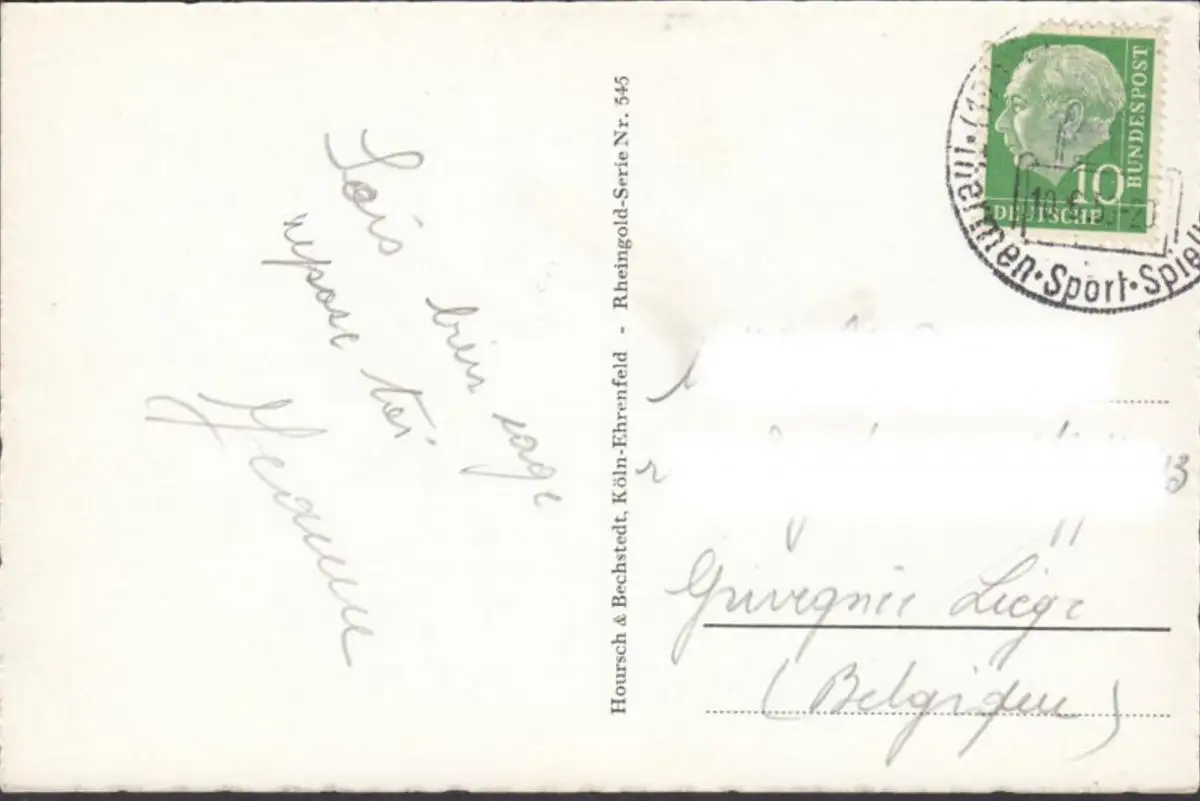 Sois bien sage
repose toi
Jeanne
Hoursch & Bechstedt, Köln-Ehrenfeld - Rheingold-Serie Nr. 545
DEUTSCHE
BUNDESPOST
10
Thermen·Sport·Spiel
13
Grivegnée Liège
(Belgien)